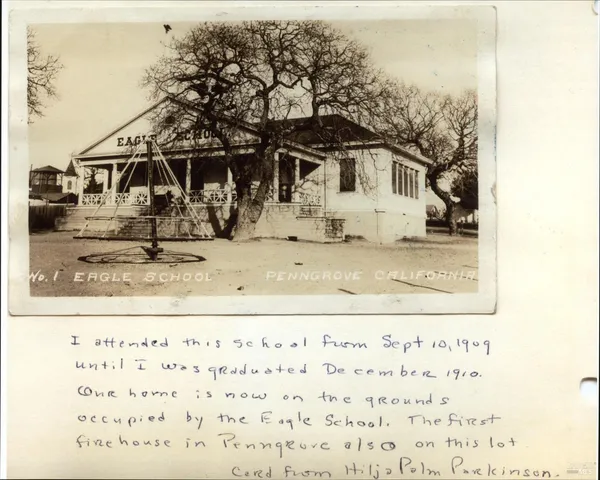 EAGLE SCHOOL
No. 1 EAGLE SCHOOL PENNGROVE CALIFORNIA
I attended this school from Sept 10, 1909
until I was graduated December 1910.
Our home is now on the grounds
occupied by the Eagle School. The first
firehouse in Penngrove also on this lot
Card from Hilja Palm Parkinson.